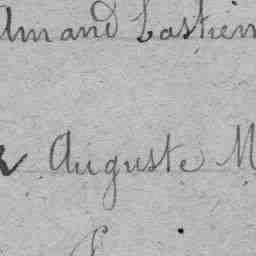 Armand Bastien
Auguste M